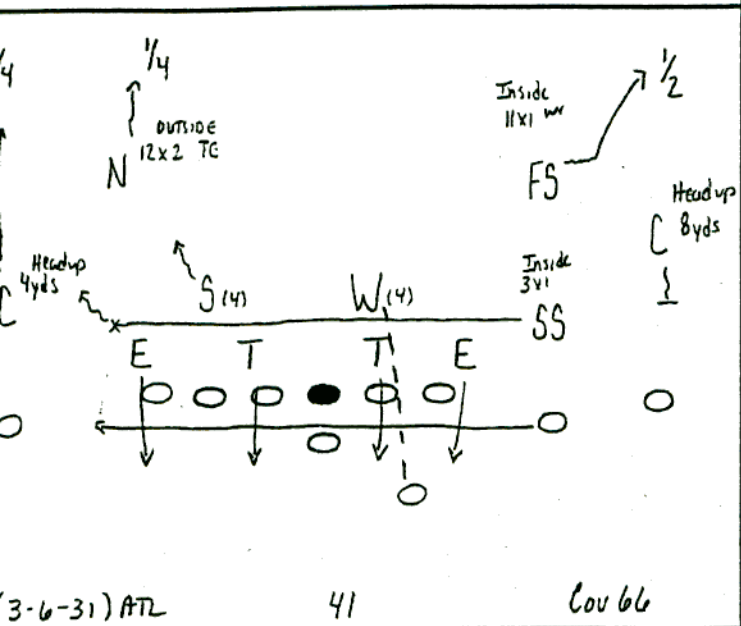 /4
1/4
OUTSIDE
12x2 TE
N
Inside
11x1 WR
1/2
FS
Headup
8yds
C
Headup
4yds
C
S (4)
W (4)
Inside
3x1
SS
x
E T T E
(3-6-31) ATL 41 Cov 66